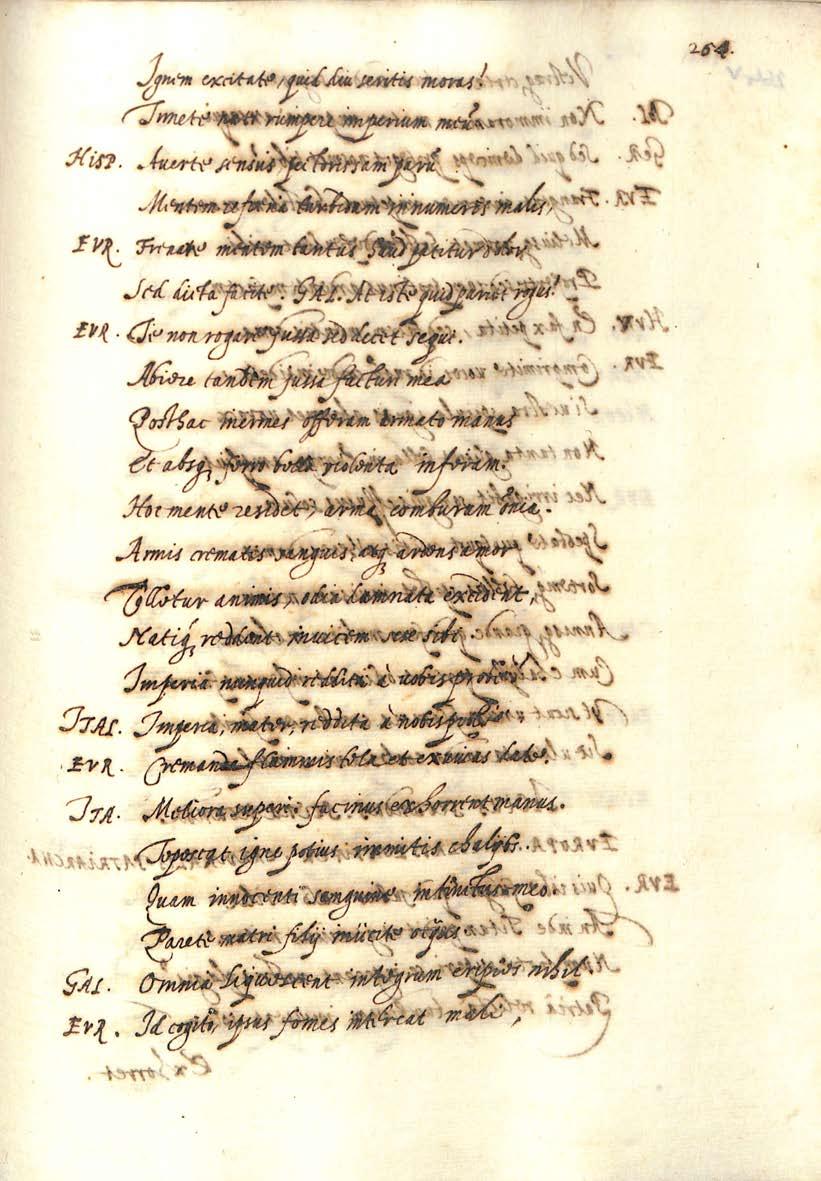 264.
Ignem excitate, quid diu seritis moras?
Timete rumpere imperium meum
HISP. Averte sensus, pectoris parum
Mentem refrena turbidam innumeris malis,
EVR. Frenare mentem tantus haud patitur dolor
Sed dicta facite. GAL. At iste quid pariet rogus?
EVR. Te non rogare jussa sed decet sequi.
Abiere tandem jussa facturi mea
Posthac inermes offeram armato manus
Et absq; ferro bella violenta inferam.
Hoc mente residet, arma comburam oĩa.
Armis crematis sanguis, atq; ardens amor
Tolletur animis, odia damnata excident,
Natiq; reddent invicem sese sibi.
Imperia nunquid reddita à vobis
ITAL. Imperia, mater, reddita à nobis
EVR. Cremanda flammis tela et exuvias date.
ITA. Meliora superi. facinus exhorrent manus.
Te poscat igne potius immitis chalybs.
Quam innocenti sanguine intinctus meo.
Parete matri filij inijcite ocijus
GAL. Omnia liquescent integrum eripies nihil
EVR. Id cogito, ipsus fomes intereat mali,